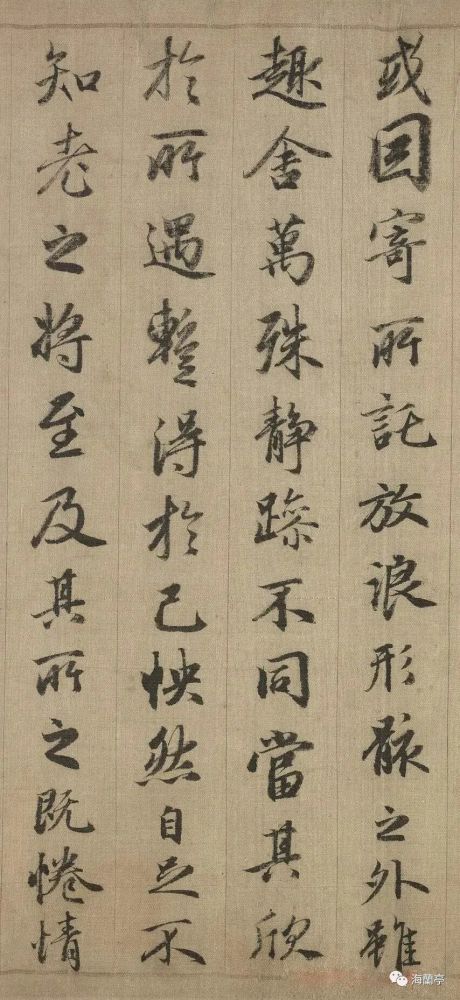 或因寄所託放浪形骸之外雖
趣舍萬殊静躁不同當其欣
於所遇蹔得於己怏然自足不
知老之將至及其所之既惓情
海蘭亭